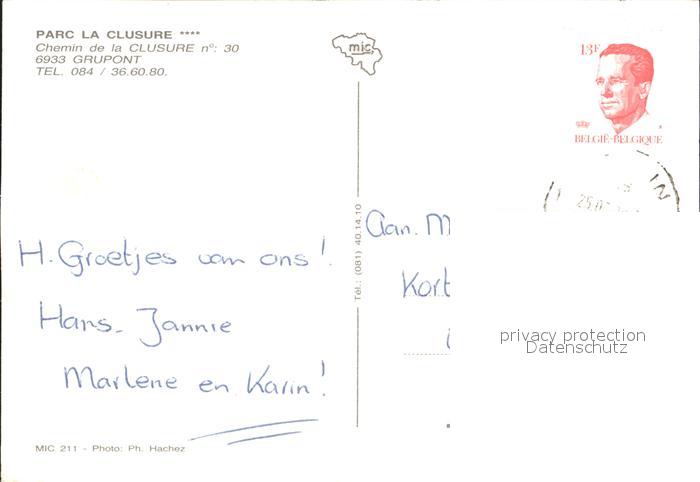 PARC LA CLUSURE ****
Chemin de la CLUSURE n°: 30
6933 GRUPONT
TEL. 084 / 36.60.80.
mic
13F
BELGIË-BELGIQUE
IN
H. Groetjes van ons!
Hans. Jannie
Marlene en Karin!
Tél.: (081) 40.14.10
Aan. M
Kort
privacy protection
Datenschutz
MIC 211 - Photo: Ph. Hachez